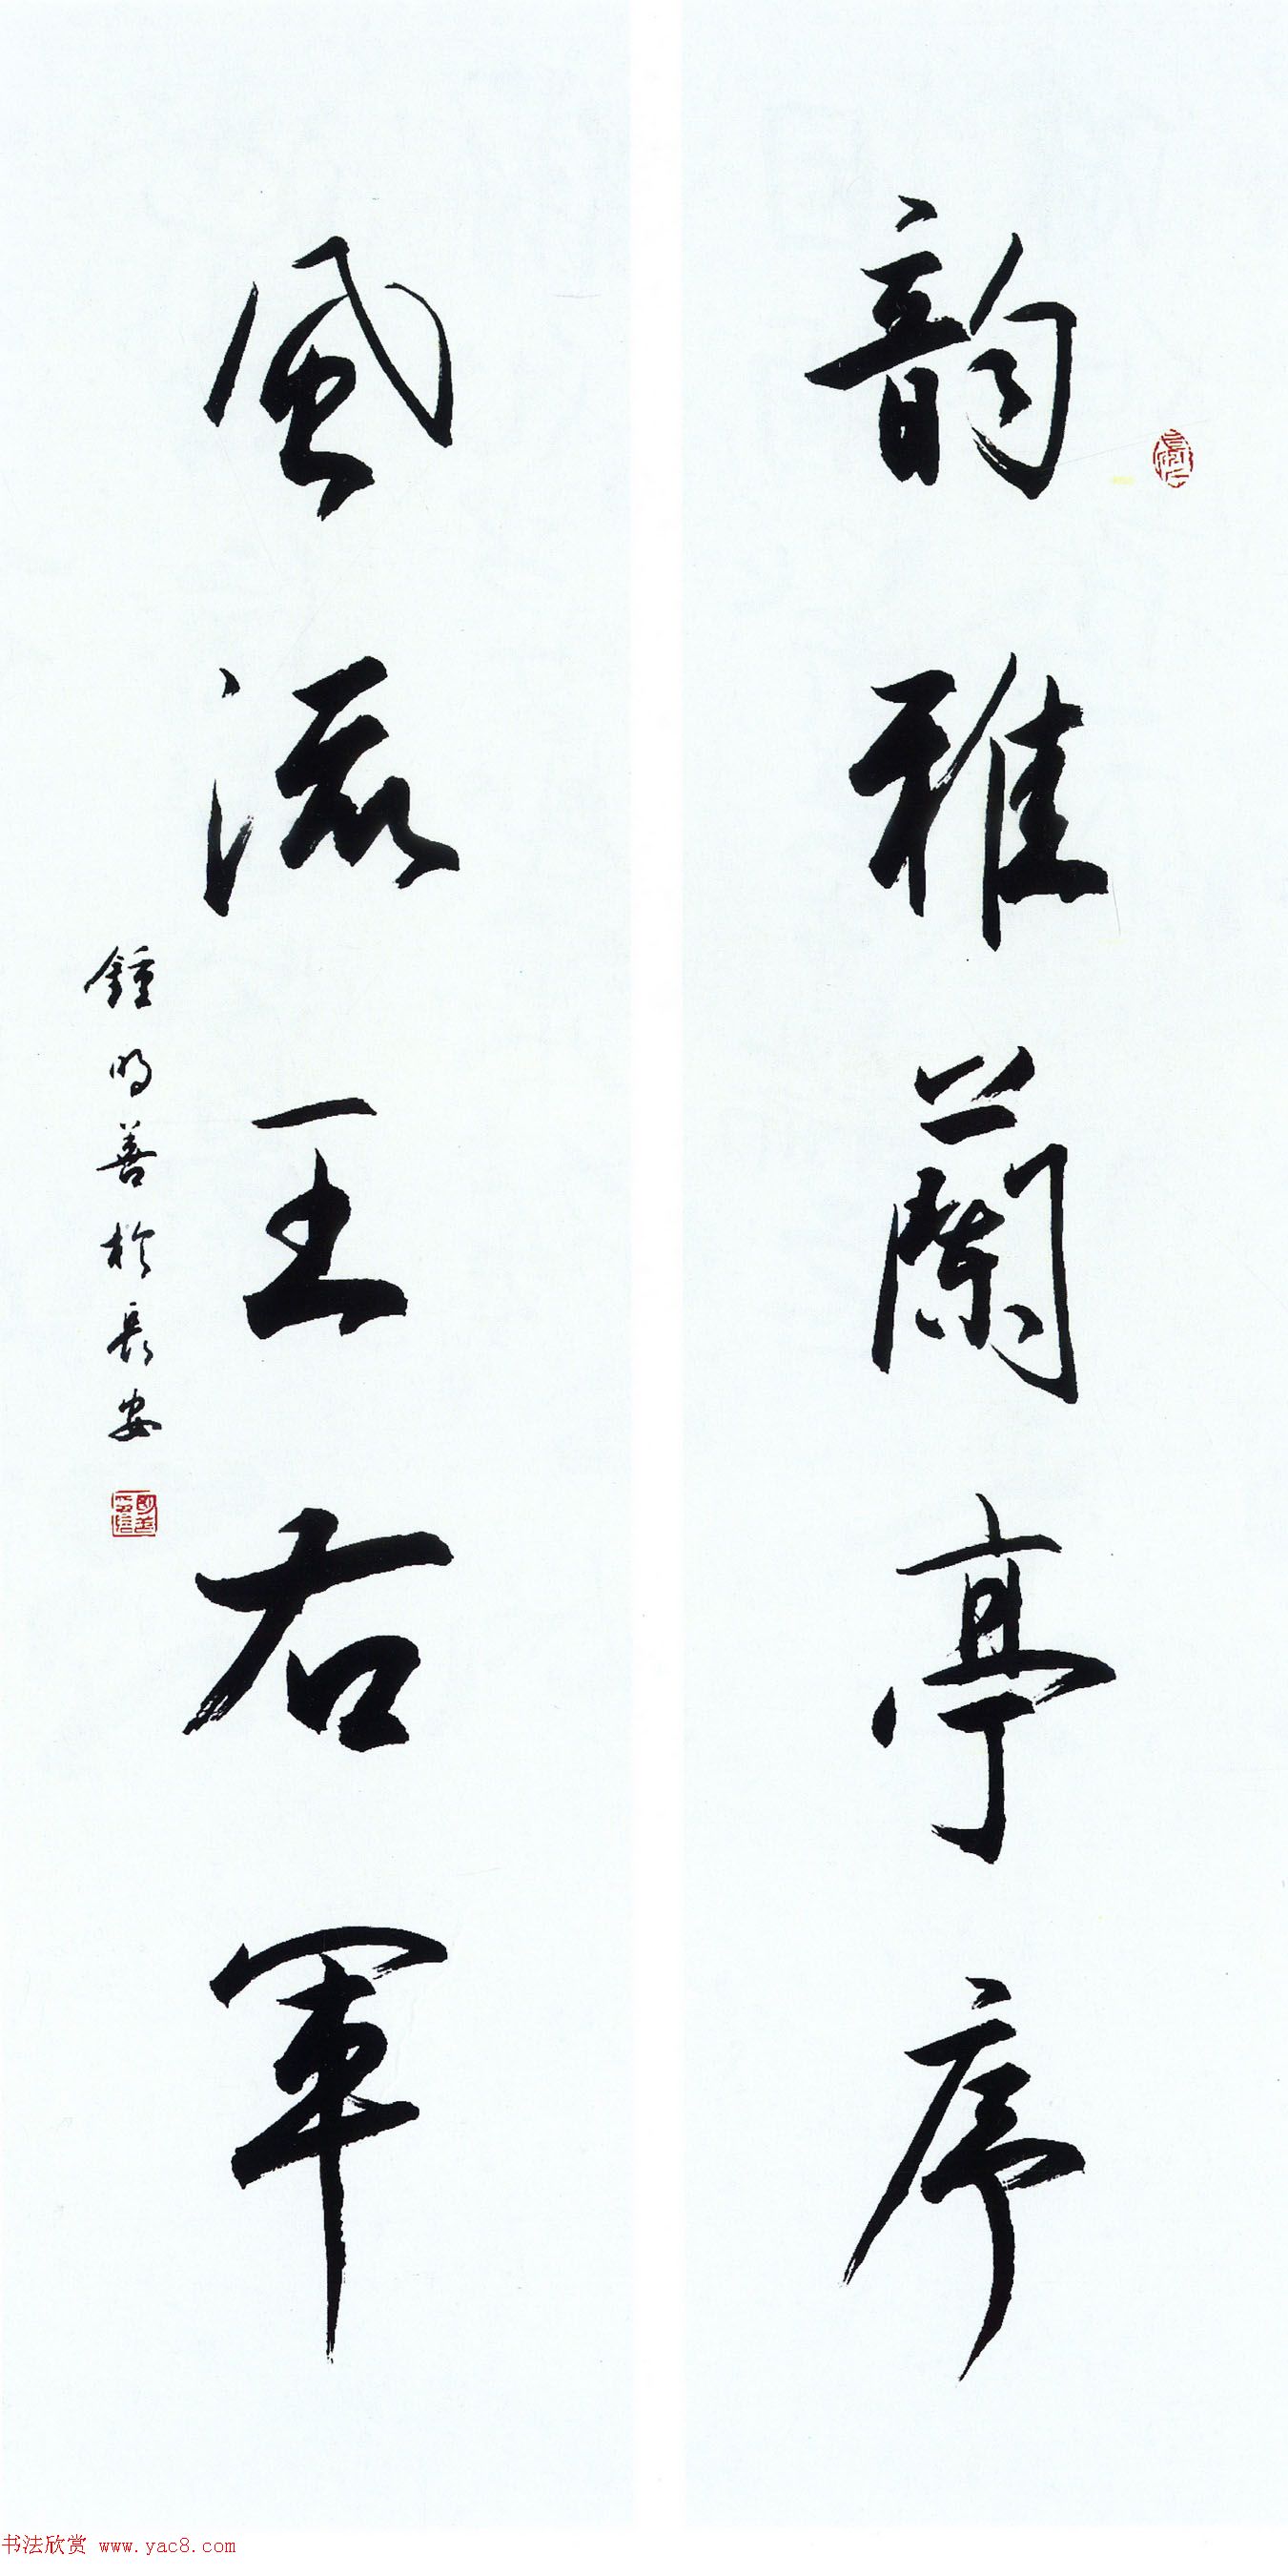 韵雅蘭亭序
風流王右軍
鍾明善於長安
书法欣赏 www.yac8.com